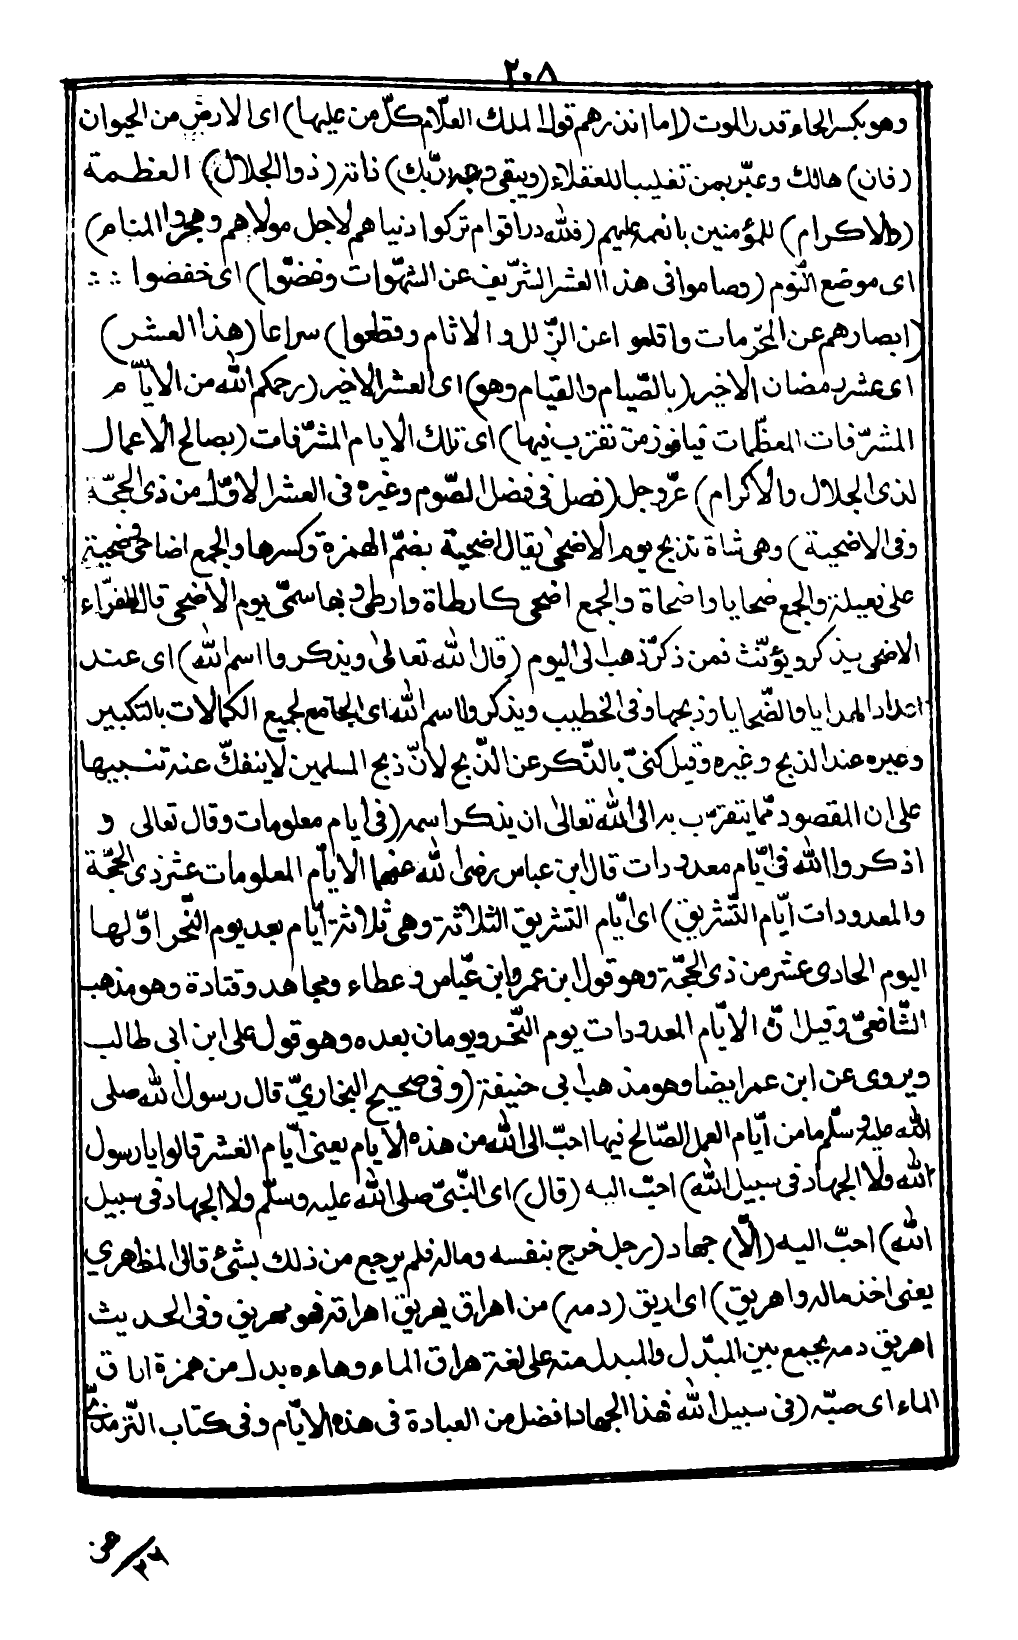 ٢٠٨
وهو بكسر الحاء قدر الموت (اما انذرهم قول الملك العلّام كلّ من عليها) اى الارض من الحيوان
(فان) هالك وعبّر بمن تغليبا للعقلاء (ويبقى وجه ربّك) ذاته (ذو الجلال) العظمة
(والاكرام) للمؤمنين بانعمه عليهم (فلله در اقوام تركوا دنياهم لاجل مولاهم وهجروا المنام)
اى موضع النّوم (وصاموا فى هذا العشر الشّريف عن الشّهوات وغضّوا) اى خفضوا
(ابصارهم عن المحرّمات واقلعوا عن الزّلل و الاثام وقطعوا) سراعا (هذا العشر)
اى عشر رمضان الاخير (بالصّيام والقيام وهو) اى العشر الاخير (رحمكم الله من الايّام
المشرّفات المعظّمات فيا فوز من تقرّب فيها) اى تلك الايام المشرّفات (بصالح الاعمال
لذى الجلال والاكرام) عزّ وجل (فصل فى فضل الصّوم وغيره فى العشر الاوّل من ذى الحجّة
وفى الاضحية) وهى شاة تذبح يوم الاضحى يقال اضحية بضمّ الهمزة وكسرها والجمع اضاحى وضحيّة
على فعيلة والجمع ضحايا واضحاة والجمع اضحى كارطاة وارطى وبها سمّى يوم الاضحى قال الفرّاء
الاضحى يذكر ويؤنّث فمن ذكّر ذهب الى اليوم (قال الله تعالى ويذكروا اسم الله) اى عند
اعداد الهدايا والضّحايا وذبحها وفى الخطيب ويذكروا اسم الله اى الجامع لجميع الكمالات بالتكبير
وغيره عند الذبح وغيره وقيل كنىّ بالذّكر عن الذّبح لانّ ذبح المسلمين لا ينفكّ عنه تنبيها
على ان المقصود ممّا يتقرّب به الى الله تعالى ان يذكر اسمه (فى أيام معلومات وقال تعالى و
اذكروا الله فى ايّام معدودات قال ابن عباس رضى الله عنهما الايّام المعلومات عشر ذى الحجّة
والمعدودات أيّام التّشريق) اى ايّام التشريق الثلاثة وهى ثلاثة أيّام بعد يوم النّحر اوّلها
اليوم الحادى عشر من ذى الحجّة وهو قول ابن عمر وابن عبّاس وعطاء ومجاهد وقتادة وهو مذهب
الشّافعىّ وقيل انّ الايّام المعدودات يوم النّحر ويومان بعده وهو قول على ابن ابى طالب
ويروى عن ابن عمر ايضا وهو مذهب ابى حنيفة (وفى صحيح البخاريّ قال رسول الله صلى
الله عليه وسلّم ما من أيّام العمل الصّالح فيها احبّ الى الله من هذه الايام يعنى أيّام العشر قالوا يا رسول
الله ولا الجهاد فى سبيل الله) احبّ اليه (قال) اى النّبىّ صلى الله عليه وسلّم ولا الجهاد فى سبيل
الله) احبّ اليه (الّا) جهاد (رجل خرج بنفسه وماله فلم يرجع من ذلك بشئ قال المظاهري
يعنى اخذ ماله واهريق) اى اريق (دمه) من اهراق يهريق اهراقة فهو مهريق وفى الحديث
اهريق دمه يجمع بين المبدّل والمبدل منه على لغة هراق الماء وهاءه بدل من همزة اراق
الماء اى صبّه (فى سبيل الله فهذا الجهاد افضل من العبادة فى هذه الايّام وفى كتاب التّرمذىّ